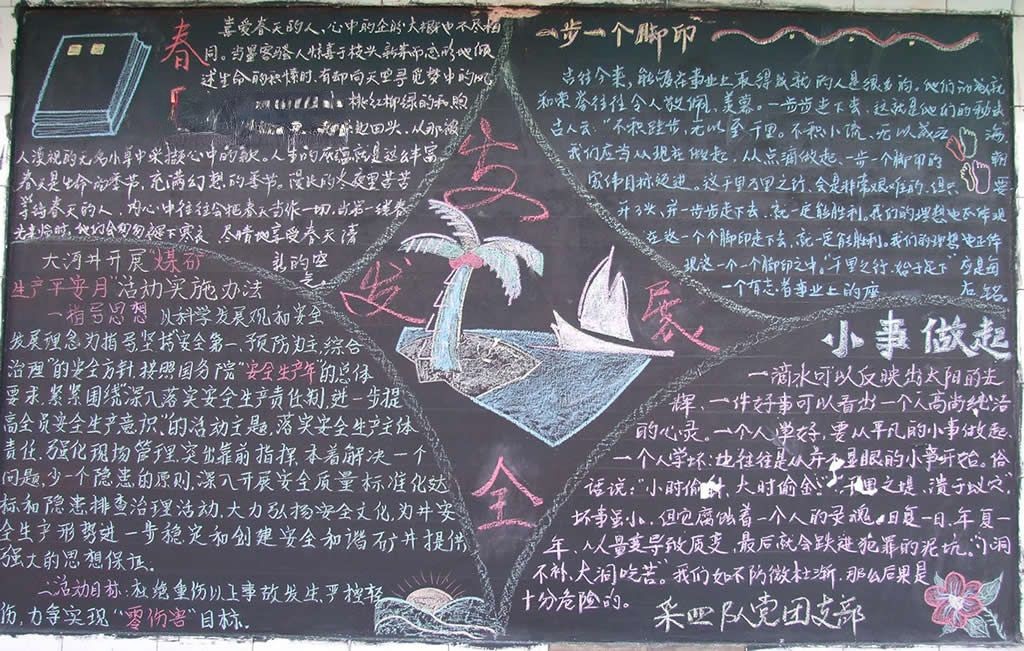 春
喜爱春天的人，心中的企盼大概也不尽相
同。当墨客骚人惊喜于枝头新来而
述生命的积懆时，有却向天里寻觅梦中的
桃红柳绿的和煦
回头，从那被
人漠视的无名小草中采撷心中的歌。人事的底蕴就是这么丰富
春天是生命的季节，充满幻想的季节。漫长的冬夜里苦苦
等待春天的人，内心中往往会把春天当作一切，当第一线春
光来临时，他们会匆匆褪下寒衣，尽情地享受春天清
乳的空
气。
大河井开展"煤矿
生产平安月"活动实施办法
一指导思想 以科学发展观和安全
发展理念为指导，坚持"安全第一，预防为主，综合
治理"的安全方针，按照国务院"安全生产年"的总体
要求，紧紧围绕"深入落实安全生产责任制，进一步提
高全员安全生产意识"的活动主题，落实安全生产主体
责任，强化现场管理，突出靠前指挥，本着解决一个
问题，少一个隐患的原则，深入开展安全质量标准化达
标和隐患排查治理活动，大力弘扬安全文化，为井安
全生产形势进一步稳定和创建安全和谐矿井提供
强大的思想保证。
二活动目标：杜绝重伤以上事故发生，严控轻
伤，力争实现"零伤害"目标。
安
全
发
展
一步一个脚印
古往今来，能够在事业上取得成就的人是很多的。他们的成就
和荣誉往往令人敬佩、羡慕。一步步走下去，这就是他们的秘诀
古人云："不积跬步，无以至千里。不积小流，无以成江海
我们应当从现在做起，从点滴做起，一步一个脚印的朝
宏伟目标迈进。这千里万里之行，会是非常艰难的，但只要
开了头，并一步步走下去，就一定能胜利。我们的理想也正体现
在这一个个脚印走下去，就一定能胜利。我们的理想也正体
现这一个一个脚印之中。"千里之行，始于足下"应是每
一个有志者事业上的座右铭。
小事做起
一滴水可以反映出太阳的光
辉，一件好事可以看出一个人高尚纯洁
的心灵。一个人学好，要从平凡的小事做起，
一个人学坏：也往往是从并不显眼的小事开始。俗
话说："小时偷针，大时偷金""千里之堤，溃于蚁穴"
坏事虽小，但它腐蚀着一个人的灵魂，日复一日，年复一
年，从量变导致质变，最后就会跌进犯罪的泥坑。"小洞
不补，大洞吃苦"。我们如不防微杜渐，那么后果是
十分危险的。
采四队党团支部